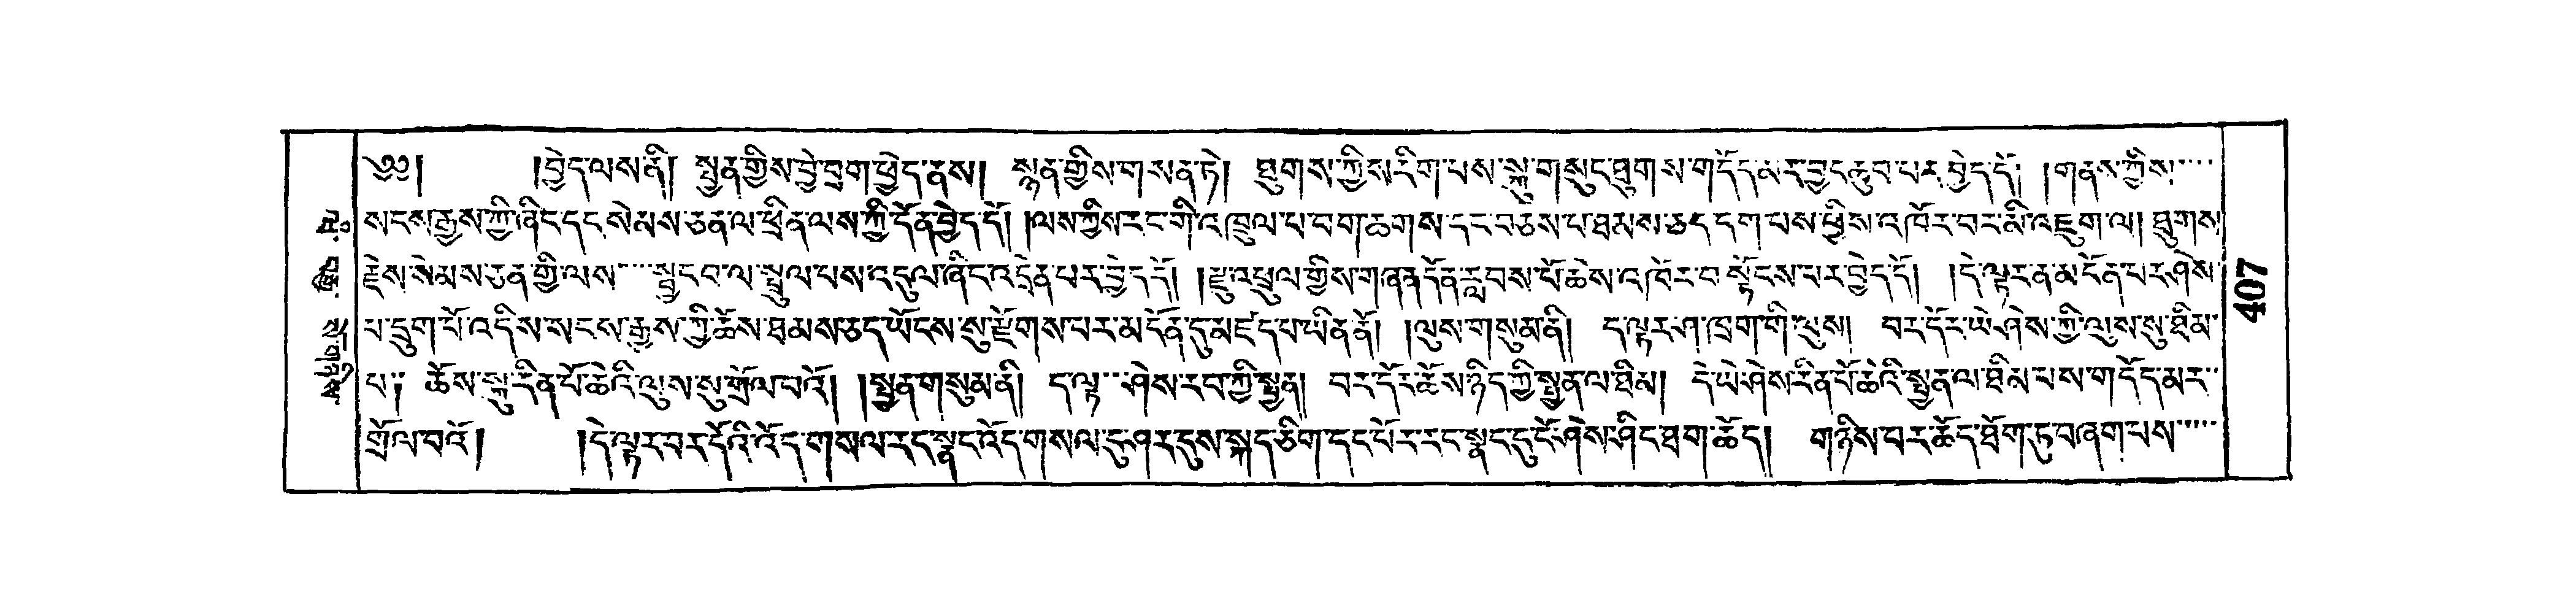 ༄༅། །བྱེད་ལས་ནི། སྤྱན་གྱིས་བྱེ་བྲག་ཕྱེད་ནས། སྙན་གྱིས་གསན་ཏེ། ཐུགས་ཀྱིས་རིག་པས་སྐུ་གསུང་ཐུགས་གདོད་མར་བྱང་ཆུབ་པར་བྱེད་དོ། །གནས་ཀྱིས་
སངས་རྒྱས་ཀྱི་ཞིང་དང་སེམས་ཅན་ལ་ཕྲིན་ལས་ཀྱི་དོན་བྱེད་དོ། །ལས་ཀྱིས་རང་གི་འཁྲུལ་པ་བག་ཆགས་དང་བཅས་པ་ཐམས་ཅད་དག་པས་ཕྱིས་འཁོར་བར་མི་འཇུག་ལ། ཐུགས་
རྗེས་སེམས་ཅན་གྱི་ལས་སྦྱང་བ་ལ་སྤྲུལ་པས་འདུལ་ཞིང་འདྲེན་པར་བྱེད་དོ། །རྫུ་འཕྲུལ་གྱིས་གཞན་དོན་རླབས་པོ་ཆེས་འཁོར་བ་སྟོངས་པར་བྱེད་དོ། །དེ་ལྟར་ན་མངོན་པར་ཤེས་
པ་དྲུག་པོ་འདིས་སངས་རྒྱས་ཀྱི་ཆོས་ཐམས་ཅད་ཡོངས་སུ་རྫོགས་པར་མངོན་དུ་མཛད་པ་ཡིན་ནོ། །ལུས་གསུམ་ནི། ད་ལྟར་ཤ་ཁྲག་གི་ལུས། བར་དོར་ཡེ་ཤེས་ཀྱི་ལུས་སུ་ཐིམ་
པ། ཆོས་སྐུ་རིན་པོ་ཆེའི་ལུས་སུ་གྲོལ་བའོ། །སྤྱན་གསུམ་ནི། ད་ལྟ་ཤེས་རབ་ཀྱི་སྤྱན། བར་དོར་ཆོས་ཉིད་ཀྱི་སྤྱན་ལ་ཐིམ། དེ་ཡེ་ཤེས་རིན་པོ་ཆེའི་སྤྱན་ལ་ཐིམ་པས་གདོད་མར་
གྲོལ་བའོ། །དེ་ལྟར་བར་དོའི་འོད་གསལ་རང་སྣང་འོད་གསལ་དུ་ཤར་དུས་སྐད་ཅིག་དང་པོར་རང་སྣང་དུ་ངོ་ཤེས་ཤིང་ཐག་ཆོད། གཉིས་པར་ཆོད་ཐོག་ཏུ་བཞག་པས་
407